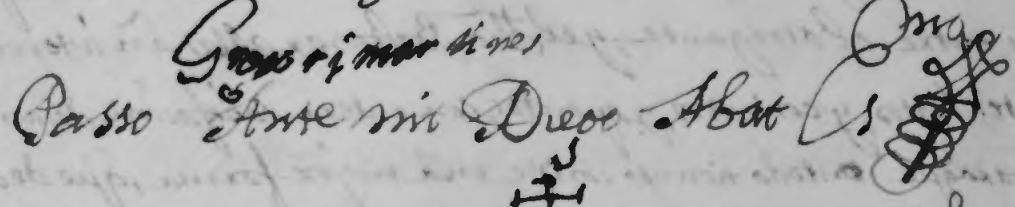 Gregorj martines
Passo Ante mi Diego Abat